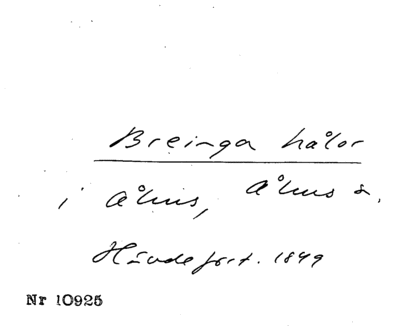 Breinga hålor
i Åhus, Åhus s.
Hävdefört. 1849
Nr 10925